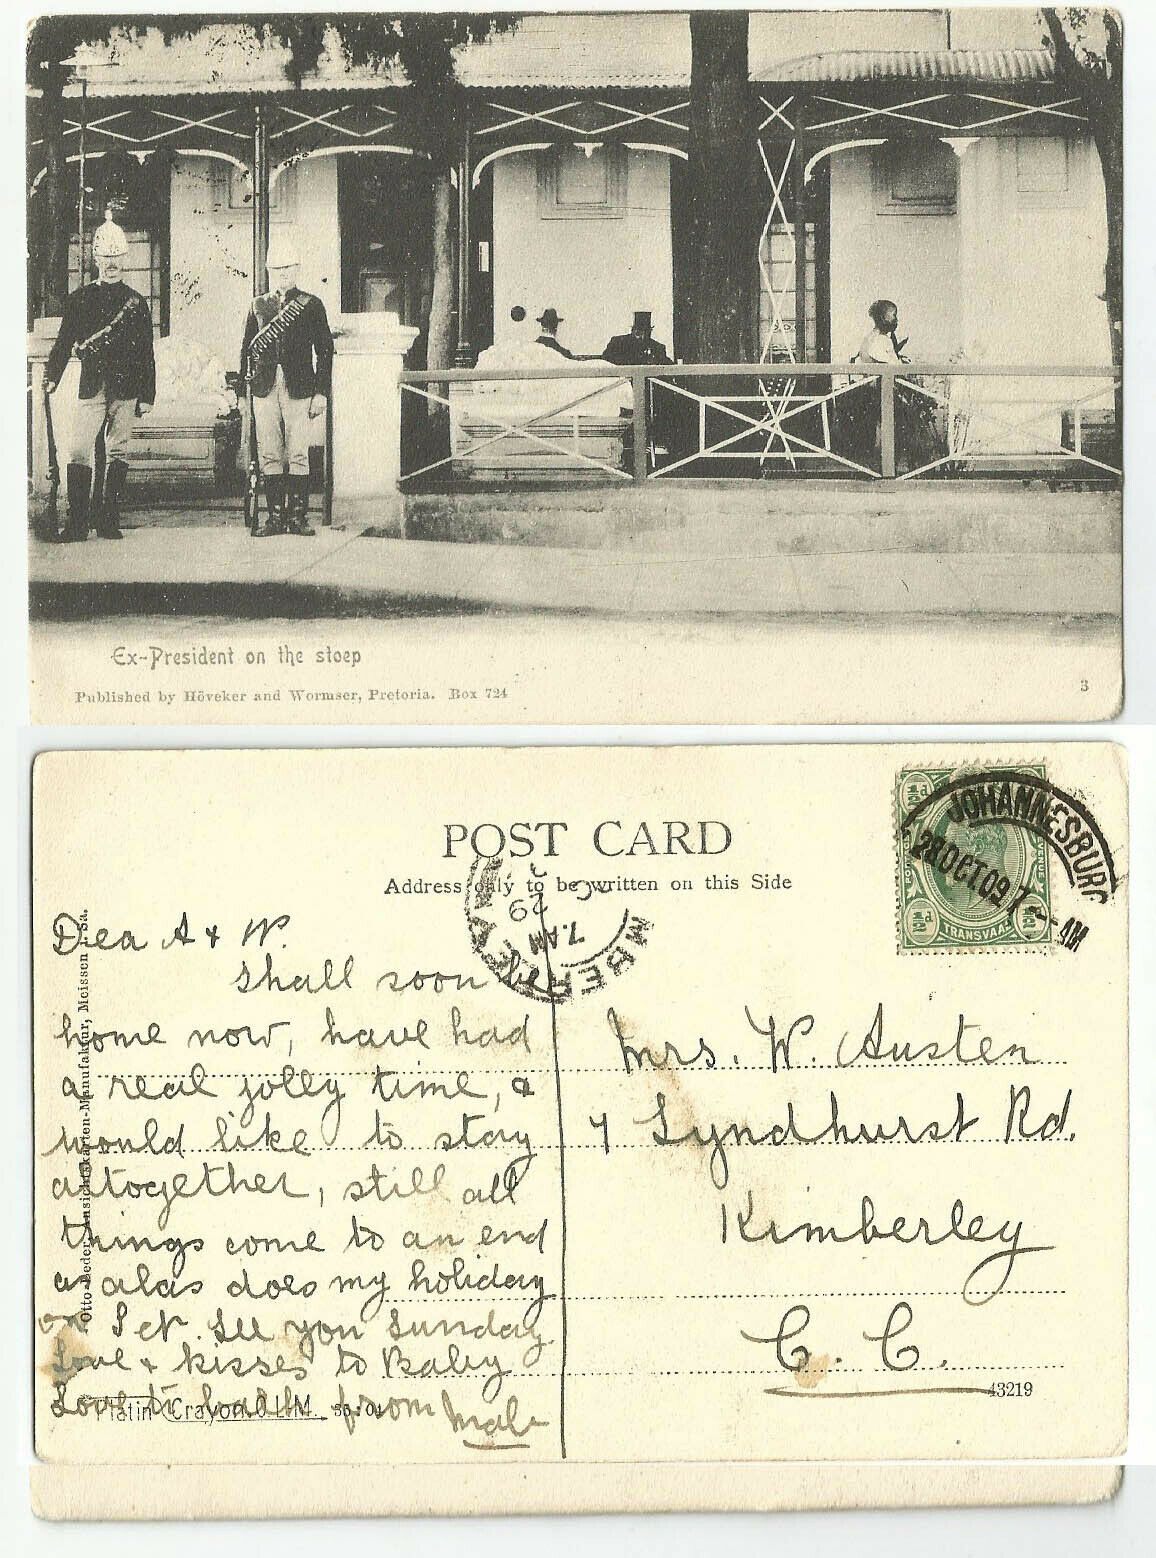 Ex-President on the stoep
Published by Höveker and Wormser, Pretoria. Box 724
3
POST CARD
Address only to be written on this Side
½d ½d
TRANSVAAL
JOHANNESBURG
28 OCT 09 7 - AM
29
7. AM
MBERLE
Dea A & W.
shall soon be
home now, have had
a real jolly time, &
would like to stay
altogether, still all
things come to an end
as alas does my holiday
on Sat. See you Sunday
Love & kisses to Baby
Love to both from Mab
Mrs. W. Austen
7 Lyndhurst Rd.
Kimberley
C. C.
43219
Otto Leder, Ansichtskarten-Manufaktur, Meissen i. Sa.
Platin Crayon O.L.M.